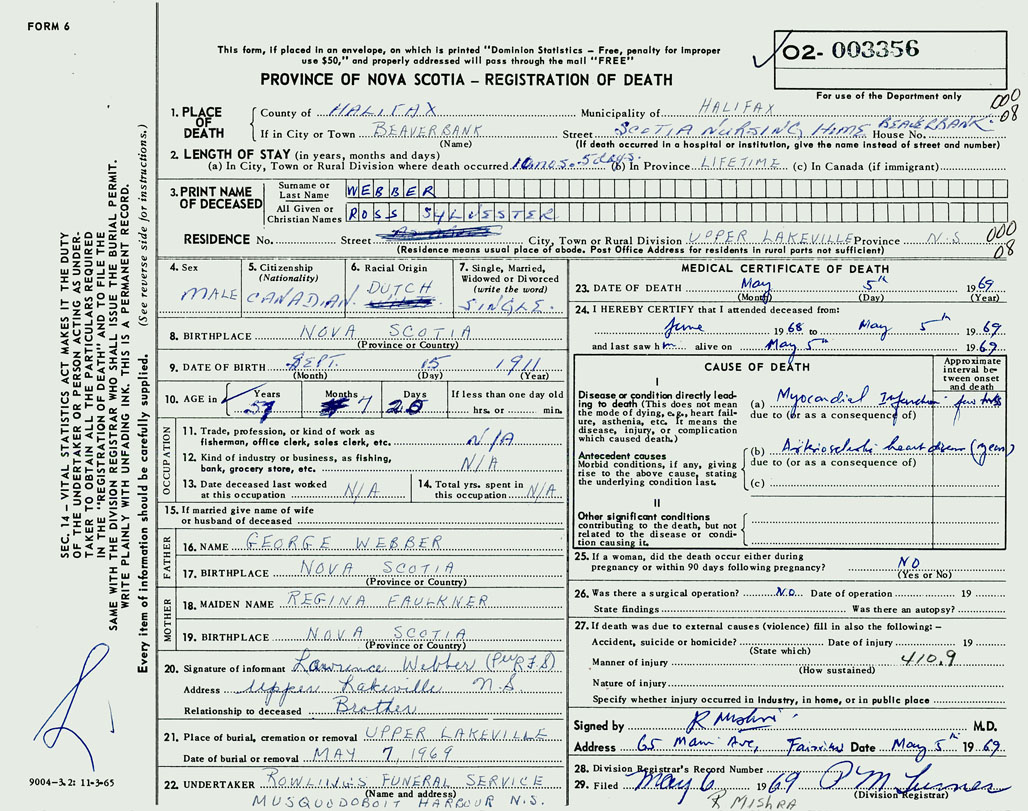 FORM 6
This form, if placed in an envelope, on which is printed "Dominion Statistics – Free, penalty for improper
use $50," and properly addressed will pass through the mail "FREE"
PROVINCE OF NOVA SCOTIA – REGISTRATION OF DEATH
02- 003356
For use of the Department only
000
08
1. PLACE OF DEATH
County of HALIFAX Municipality of HALIFAX
If in City or Town BEAVERBANK Street SCOTIA NURSING HOME BEAVERBANK House No.
(Name) (If death occurred in a hospital or institution, give the name instead of street and number)
2. LENGTH OF STAY (in years, months and days)
(a) In City, Town or Rural Division where death occurred 10 mos. 5 days. (b) In Province LIFETIME (c) In Canada (if immigrant)
3. PRINT NAME OF DECEASED
Surname or Last Name WEBBER
All Given or Christian Names ROSS SYLVESTER
RESIDENCE No. Street City, Town or Rural Division UPPER LAKEVILLE Province N.S
(Residence means usual place of abode. Post Office Address for residents in rural parts not sufficient)
000
08
4. Sex
MALE
5. Citizenship
(Nationality)
CANADIAN
6. Racial Origin
DUTCH
7. Single, Married, Widowed or Divorced
(write the word)
SINGLE.
8. BIRTHPLACE NOVA SCOTIA
(Province or Country)
9. DATE OF BIRTH SEPT. 15 1911
(Month) (Day) (Year)
10. AGE in Years Months Days If less than one day old
57 7 20 hrs. or min.
OCCUPATION
11. Trade, profession, or kind of work as
fisherman, office clerk, sales clerk, etc. N/A
12. Kind of industry or business, as fishing,
bank, grocery store, etc. N/A
13. Date deceased last worked
at this occupation N/A
14. Total yrs. spent in
this occupation N/A
15. If married give name of wife
or husband of deceased
FATHER
16. NAME GEORGE WEBBER
17. BIRTHPLACE NOVA SCOTIA
(Province or Country)
MOTHER
18. MAIDEN NAME REGINA FAULKNER
19. BIRTHPLACE NOVA SCOTIA
(Province or Country)
20. Signature of informant Lawrence Webber
Address Upper Lakeville N.S.
Relationship to deceased Brother
21. Place of burial, cremation or removal UPPER LAKEVILLE
Date of burial or removal MAY 7, 1969
22. UNDERTAKER ROWLINGS FUNERAL SERVICE
(Name and address)
MUSQUODOBOIT HARBOUR N.S.
MEDICAL CERTIFICATE OF DEATH
23. DATE OF DEATH May 5th 1969
(Month) (Day) (Year)
24. I HEREBY CERTIFY that I attended deceased from:
June 1968 to May 5th 1969
and last saw him alive on May 5th 1969
CAUSE OF DEATH
Approximate interval between onset and death
I
Disease or condition directly leading to death (This does not mean the mode of dying, e.g., heart failure, asthenia, etc. It means the disease, injury, or complication which caused death.)
(a) Myocardial Infarction few hrs
due to (or as a consequence of)
Antecedent causes
Morbid conditions, if any, giving rise to the above cause, stating the underlying condition last.
(b) Arteriosclerotic heart disease (years)
due to (or as a consequence of)
(c)
II
Other significant conditions
contributing to the death, but not
related to the disease or condition causing it.
25. If a woman, did the death occur either during
pregnancy or within 90 days following pregnancy? NO
(Yes or No)
26. Was there a surgical operation? NO. Date of operation 19
State findings Was there an autopsy?
27. If death was due to external causes (violence) fill in also the following: –
Accident, suicide or homicide? Date of injury 19
(State which)
Manner of injury 410.9
(How sustained)
Nature of injury
Specify whether injury occurred in Industry, in home, or in public place
Signed by R Mishra M.D.
Address 65 Main Ave, Fairview Date May 5th 1969
28. Division Registrar's Record Number
29. Filed May 6 1969 P M Turner
(Division Registrar)
R MISHRA
SEC. 14 – VITAL STATISTICS ACT MAKES IT THE DUTY
OF THE UNDERTAKER OR PERSON ACTING AS UNDERTAKER TO OBTAIN ALL THE PARTICULARS REQUIRED
IN THE "REGISTRATION OF DEATH" AND TO FILE THE
SAME WITH THE DIVISION REGISTRAR WHO SHALL ISSUE THE BURIAL PERMIT.
WRITE PLAINLY WITH UNFADING INK. THIS IS A PERMANENT RECORD.
Every item of information should be carefully supplied. (See reverse side for instructions.)
9004–3.2: 11-3-65